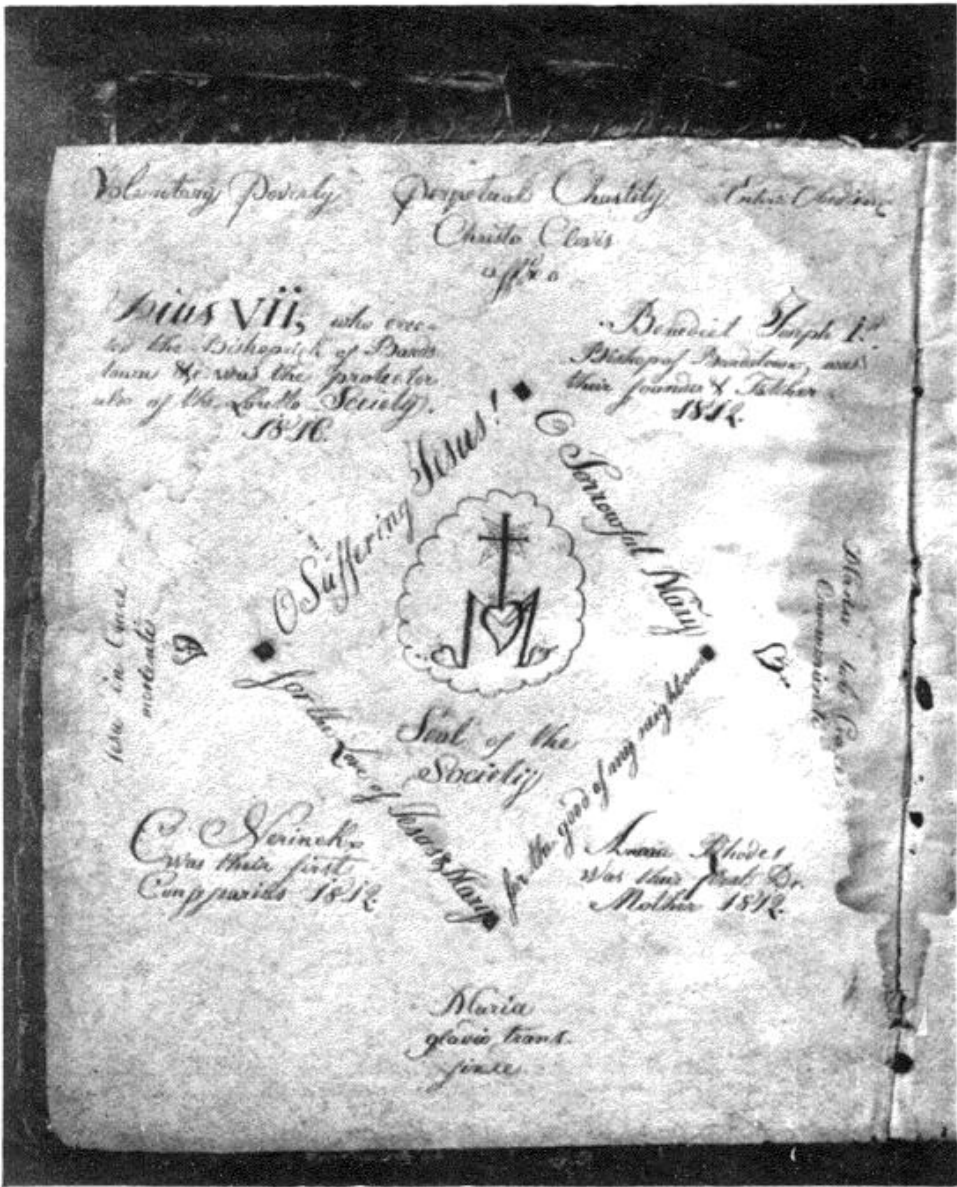 Voluntary Poverty Perpetual Chastity Entire Obedience
Christo Clavis
affixo
Pius VII, who erec-
ted the Bishoprick of Bards
town & was the protector
also of the Loretto Society.
1816.
Benedict Joseph 1st
Bishop of Beardstown, was
their founder & Father
1812.
O Suffering Jesus!
O Sorrowful Mary
for the Love of Jesus & Mary
for the good of my neighbour
Seal of the
Society
in Cruce
Maria sub Cruce
C Nerinck
was their first
1812
Rhodes
Was their first Dr.
Mother 1812.
Maria
glavio trans